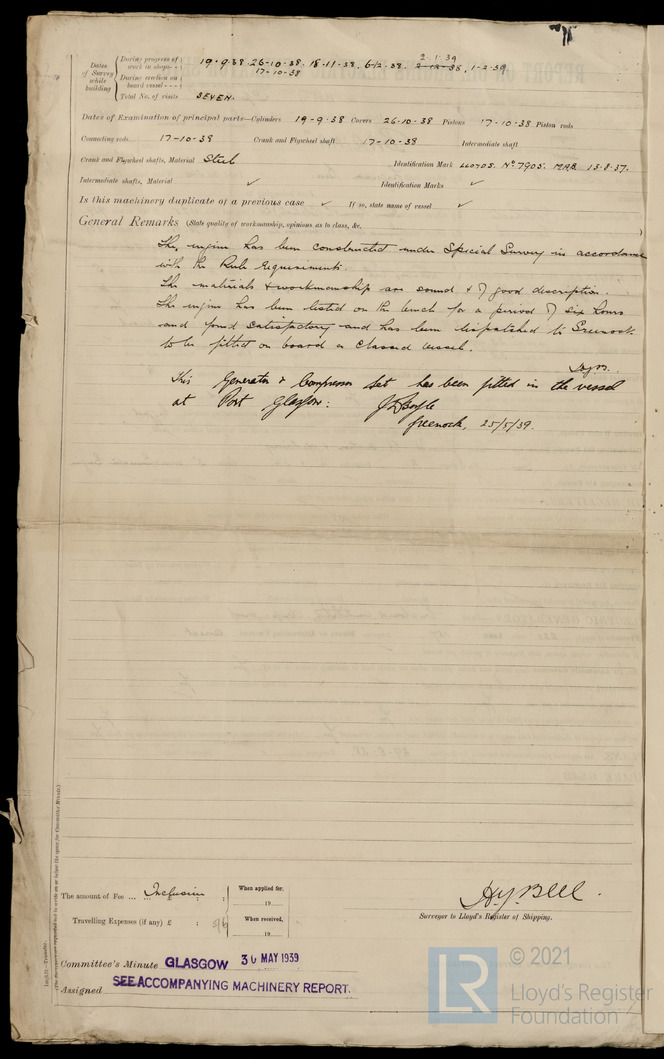 Dates of Survey while building
During progress of work in shops - - 19-9-38 26-10-38. 18-11-38. 6-12-38. 2-12-38, 1-2-39
2-1-39
17-10-38
During erection on board vessel - - -
Total No. of visits SEVEN.
Dates of Examination of principal parts—Cylinders 19-9-38 Covers 26-10-38 Pistons 17-10-38 Piston rods
Connecting rods 17-10-38 Crank and Flywheel shaft 17-10-38 Intermediate shaft
Crank and Flywheel shafts, Material Steel Identification Mark LLOYDS. No 7905. MAB 13-8-37.
Intermediate shafts, Material ✓ Identification Marks ✓
Is this machinery duplicate of a previous case ✓ If so, state name of vessel ✓
General Remarks (State quality of workmanship, opinions as to class, &c.
The engine has been constructed under Special Survey in accordance
with the Rule Requirements.
The materials & workmanship are sound & of good description.
The engine has been tested on the bench for a period of six hours
and found satisfactory and has been dispatched to Greenock
to be fitted on board a classed vessel.
This Generator & Compressor set has been fitted in the vessel
at Port Glasgow:
Greenock, 25/5/39.
The amount of Fee ... Inclusive :
When applied for,
19
Travelling Expenses (if any) £ :
When received,
19
H.Y. Bell.
Surveyor to Lloyd's Register of Shipping.
Committee's Minute GLASGOW 30 MAY 1939
Assigned SEE ACCOMPANYING MACHINERY REPORT.
(The Surveyors are requested not to write on or below the space for Committee's Minute.)
LR
© 2021
Lloyd's Register
Foundation